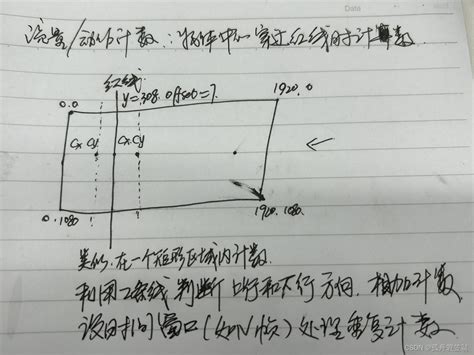 流量/动向计数:物体中心穿过红线用于计数.
红线
y=308. offset=7.
0.0
1920.0
cx cy
cx cy
0.1080
1920.1080.
类似:在一个矩形区域内计数.
利用2条线判断上行和下行方向.相加计数
设时间窗口(如N帧)处理重复计数